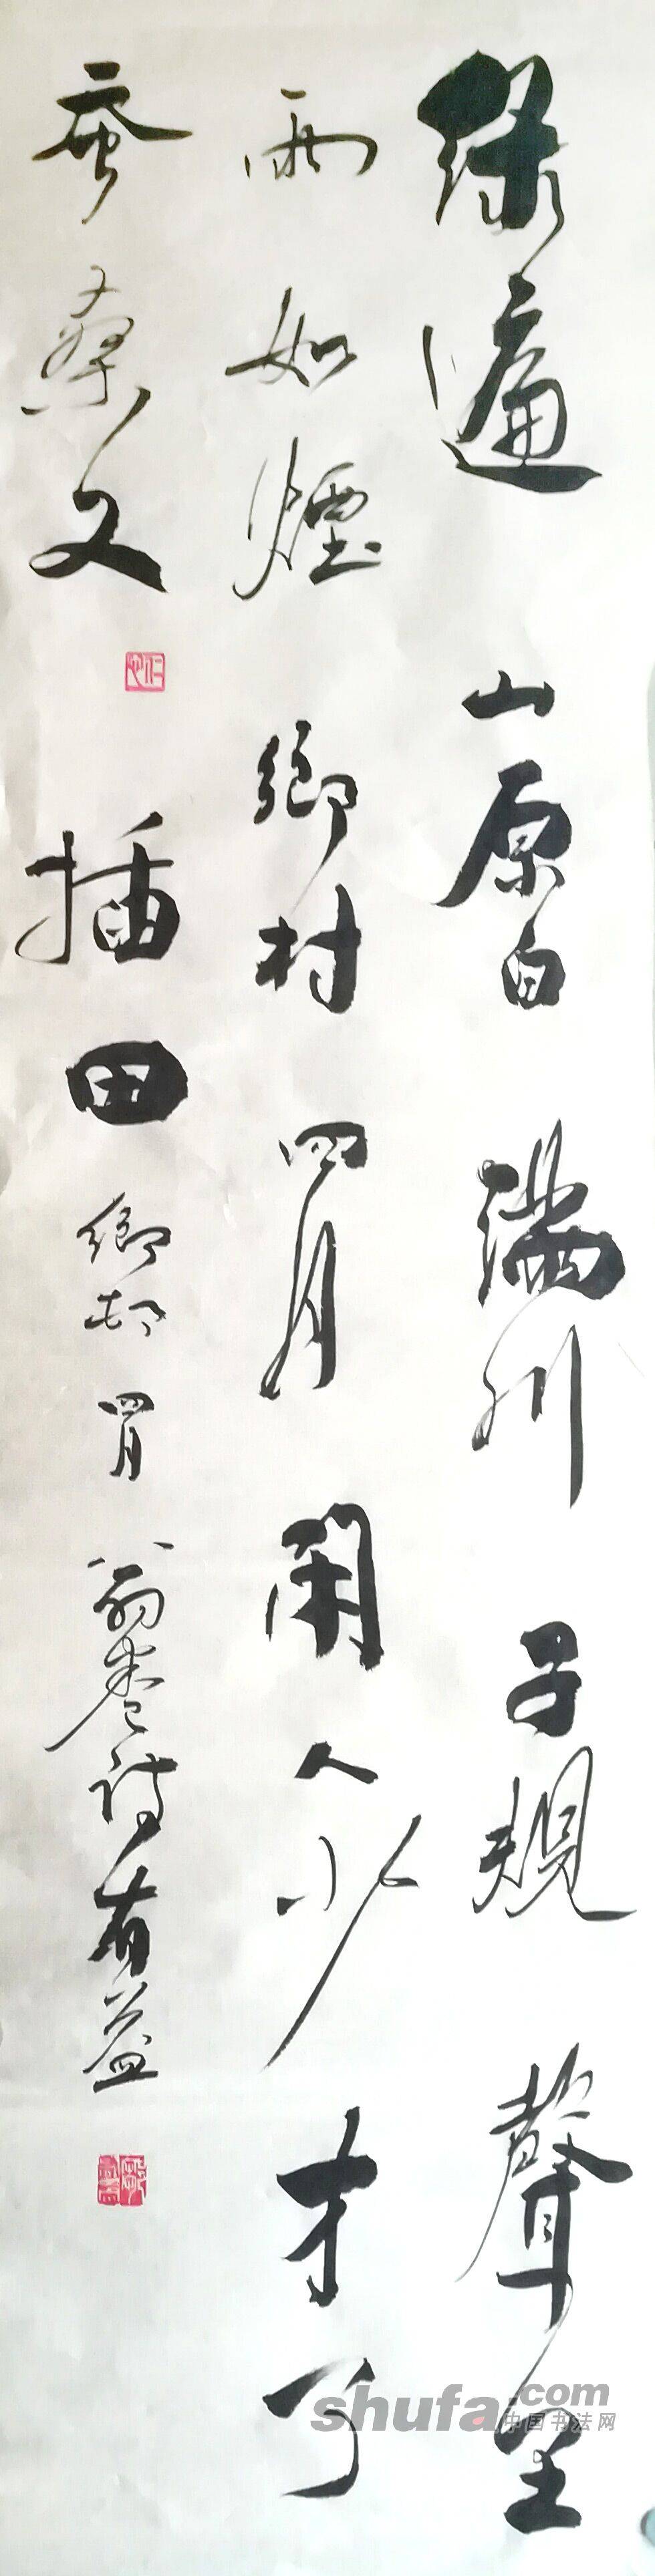 绿遍山原白满川子規聲里
雨如煙鄉村四月閑人少才了
蚕桑又插田鄉村四月翁卷詩有益
shufa.com
中国书法网